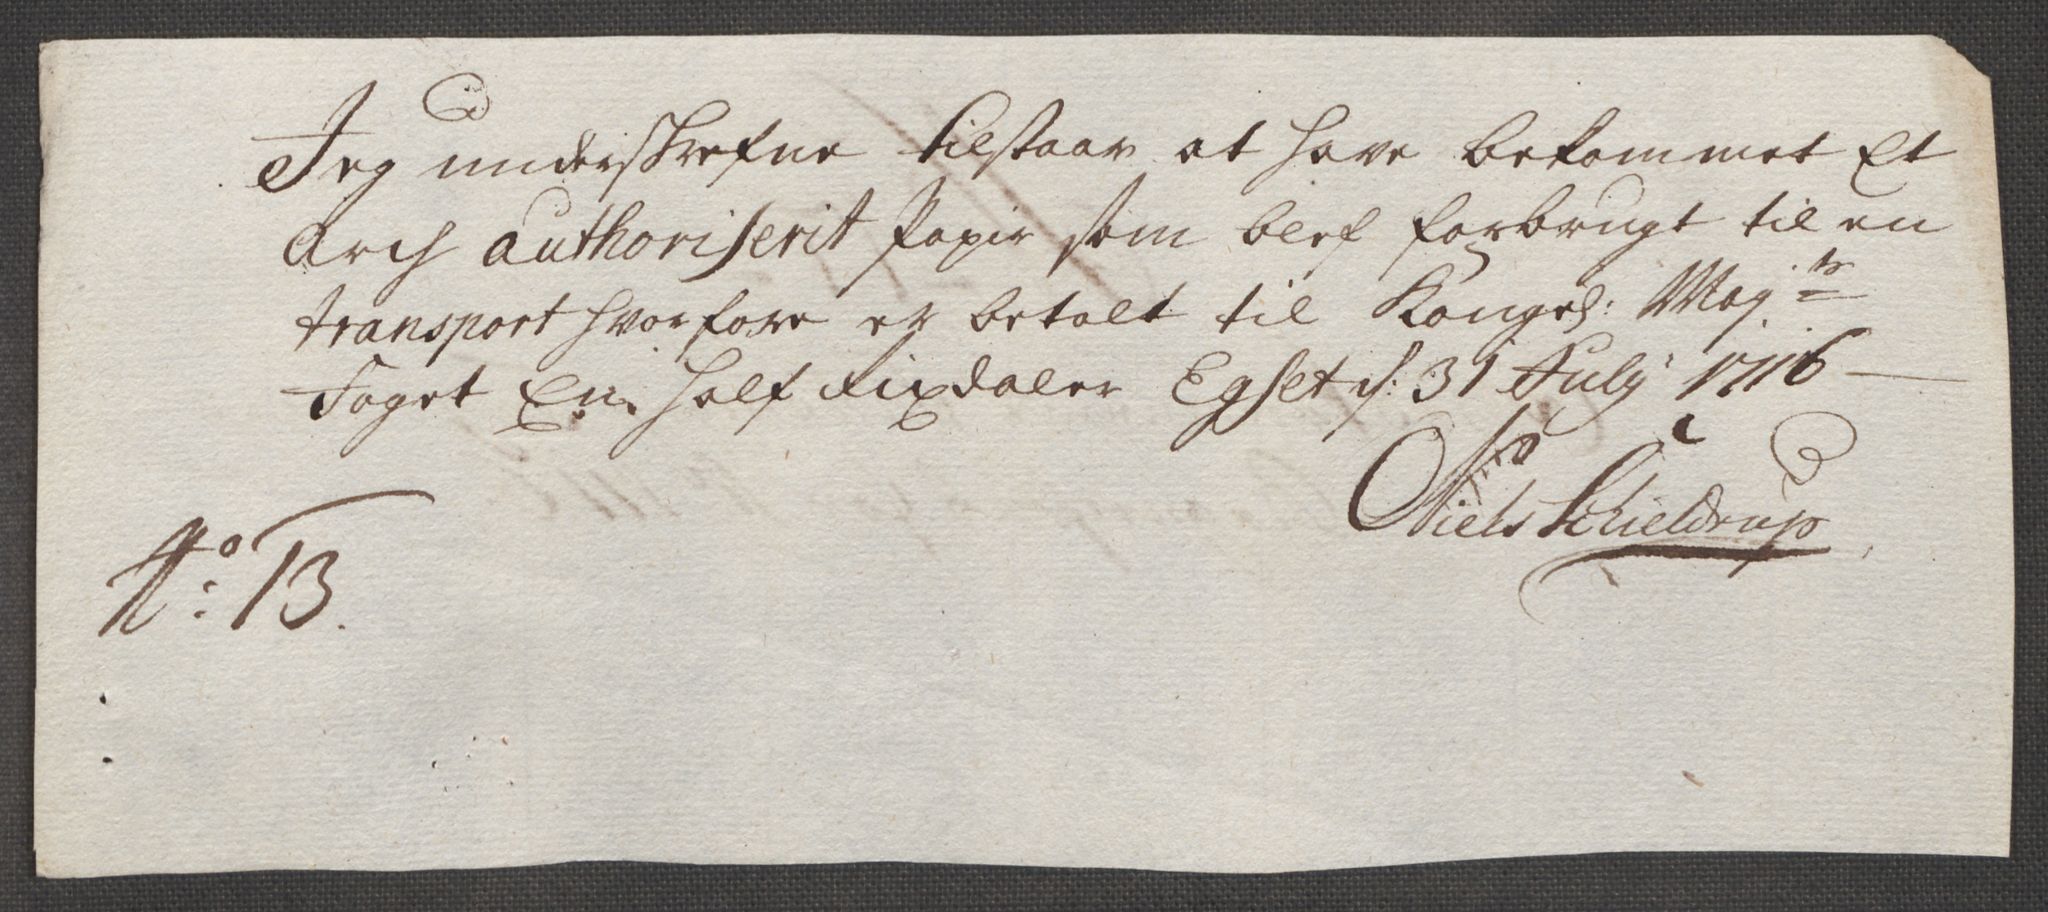 Jeg underskrefne tilstaar at have bekommet Et
Arch authoriserit Papir som blef forbrugt til en
transport hvorfore er betalt til Kongel: Maj:ts
Foget En half Rixdaler Egset d: 31 July 1716
Niels Schieldrup
No: 13.